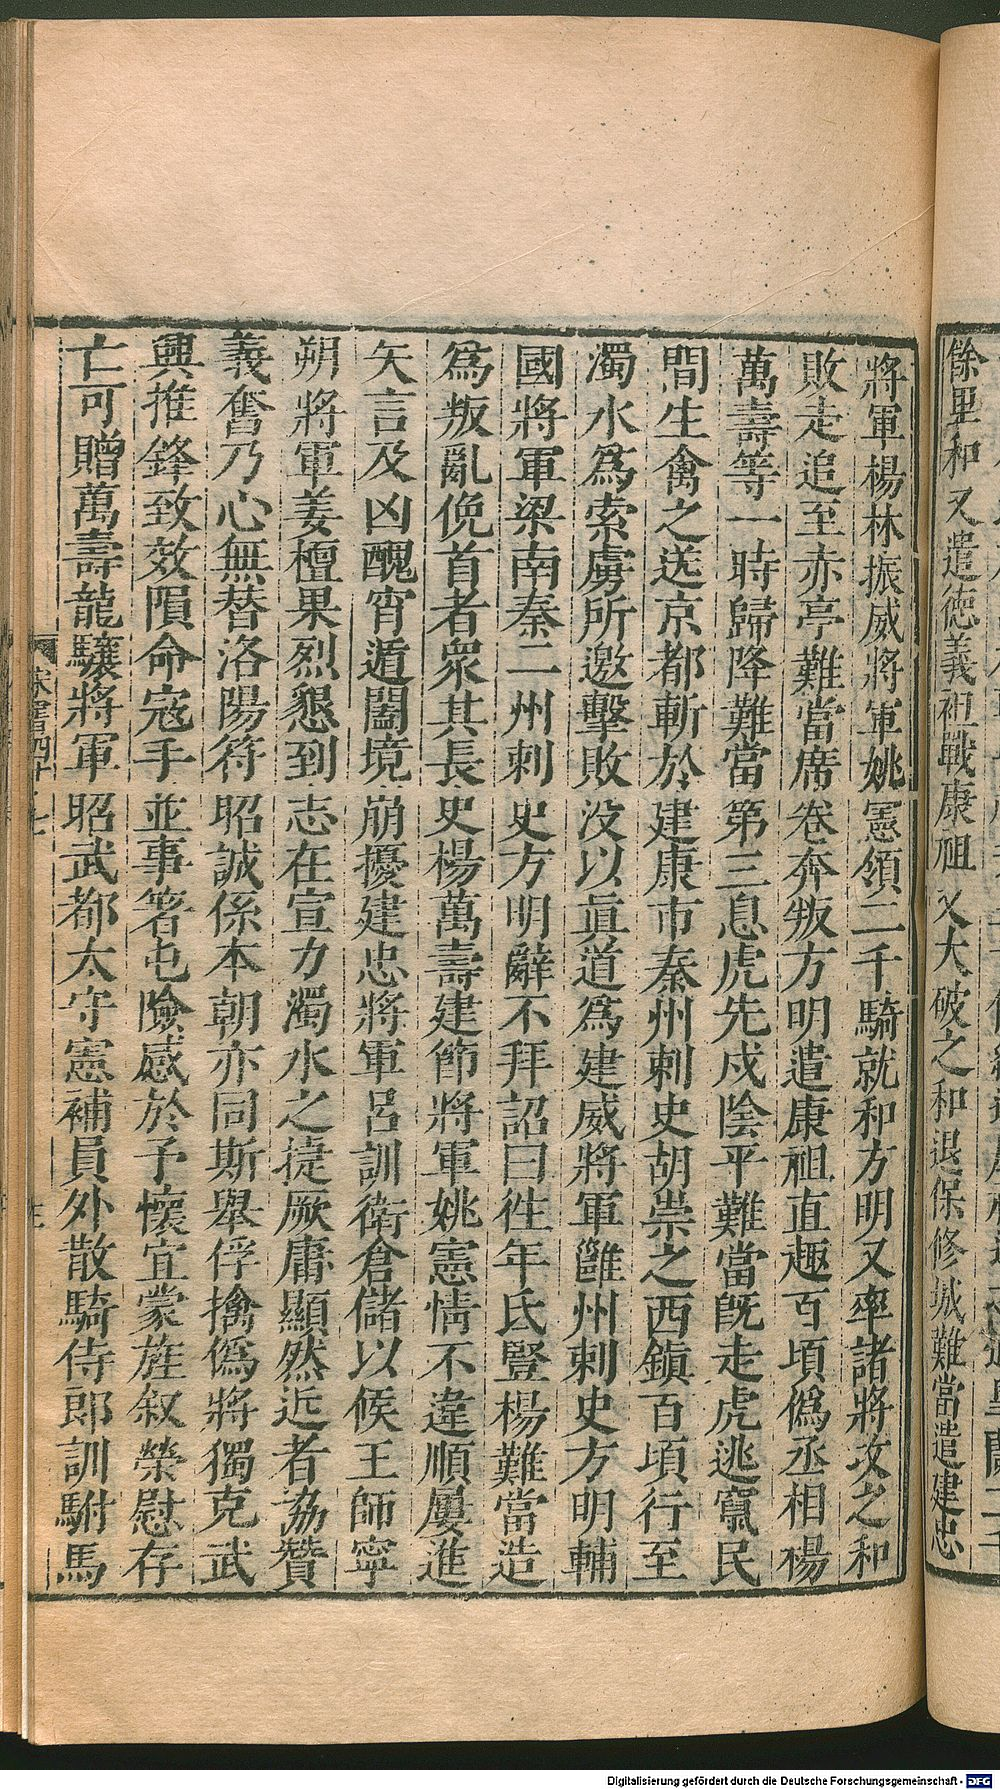 餘里和又遣德義祖戰康祖又大破之和退保修城難當遣建忠
將軍楊林振威將軍姚憲領二千騎就和方明又率諸將攻之和
敗走追至赤亭難當席卷奔叛方明遣康祖直趣百頃偽丞相楊
萬壽等一時歸降難當第三息虎先戍陰平難當旣走虎逃竄民
間生禽之送京都斬於建康市秦州刺史胡崇之西鎭百頃行至
濁水爲索虜所邀擊敗没以眞道爲建威將軍雝州刺史方明輔
國將軍梁南秦二州刺史方明辭不拜詔曰徃年氐豎楊難當造
爲叛亂俛首者衆其長史楊萬壽建節將軍姚憲情不違順屢進
矢言及凶醜宵遁闔境崩擾建忠將軍呂訓衛倉儲以候王師寧
朔將軍姜檀果烈懇到志在宣力濁水之捷厥庸顯然近者協贊
義奮乃心無替洛陽符昭誠係本朝亦同斯舉俘擒偽將獨克武
興推鋒致效隕命寇手並事著屯險感於予懷宜蒙旌叙榮慰存
亡可贈萬壽龍驤將軍昭武都太守憲補員外散騎侍郎訓駙馬
Digitalisierung gefördert durch die Deutsche Forschungsgemeinschaft - DFG